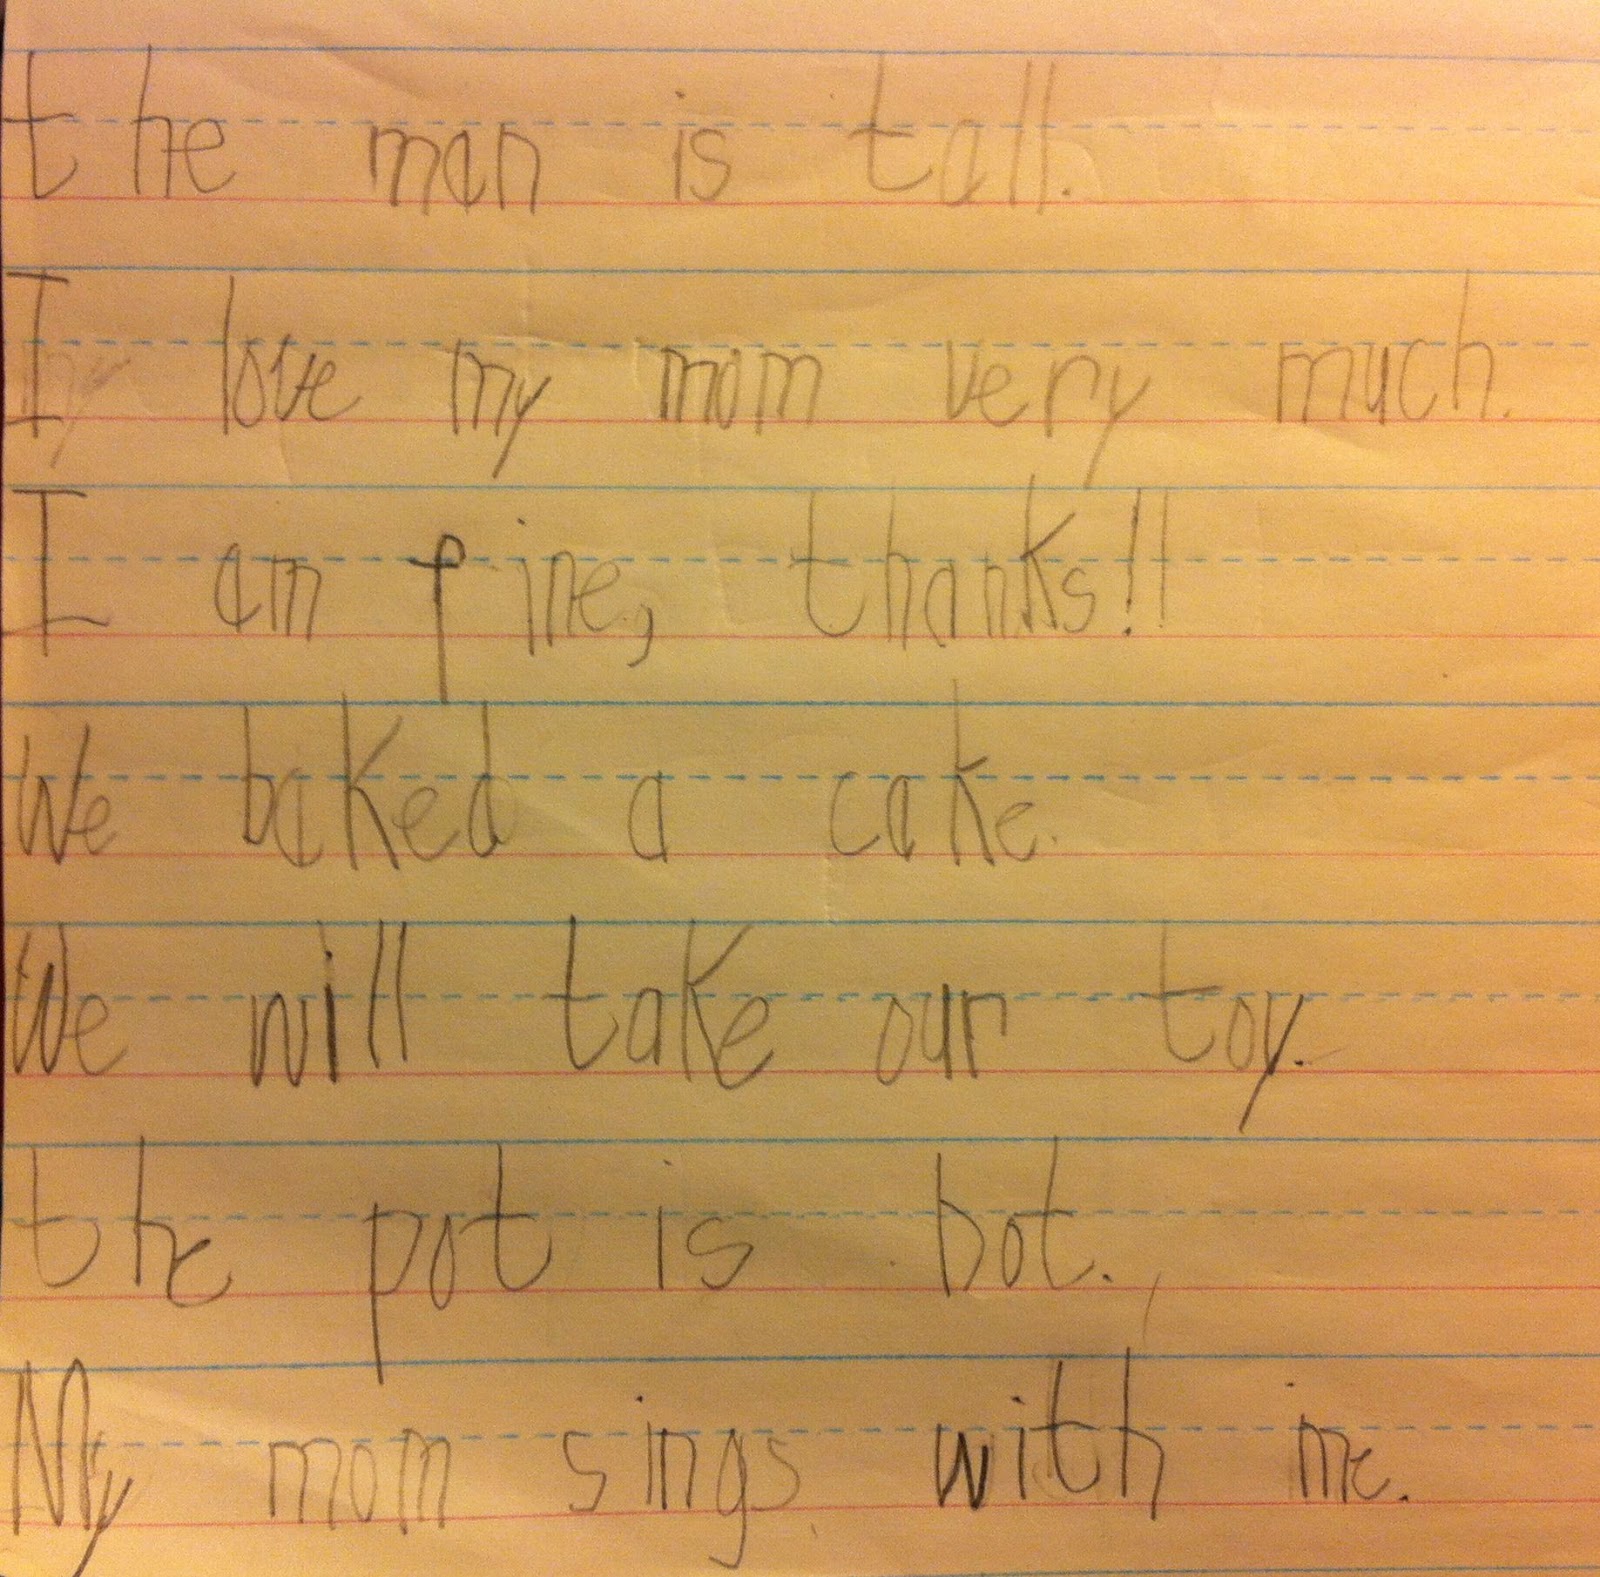 the man is tall.
I love my mom very much.
I am fine, thanks!!
We baked a cake.
We will take our toy.
the pot is hot.
My mom sings with me.